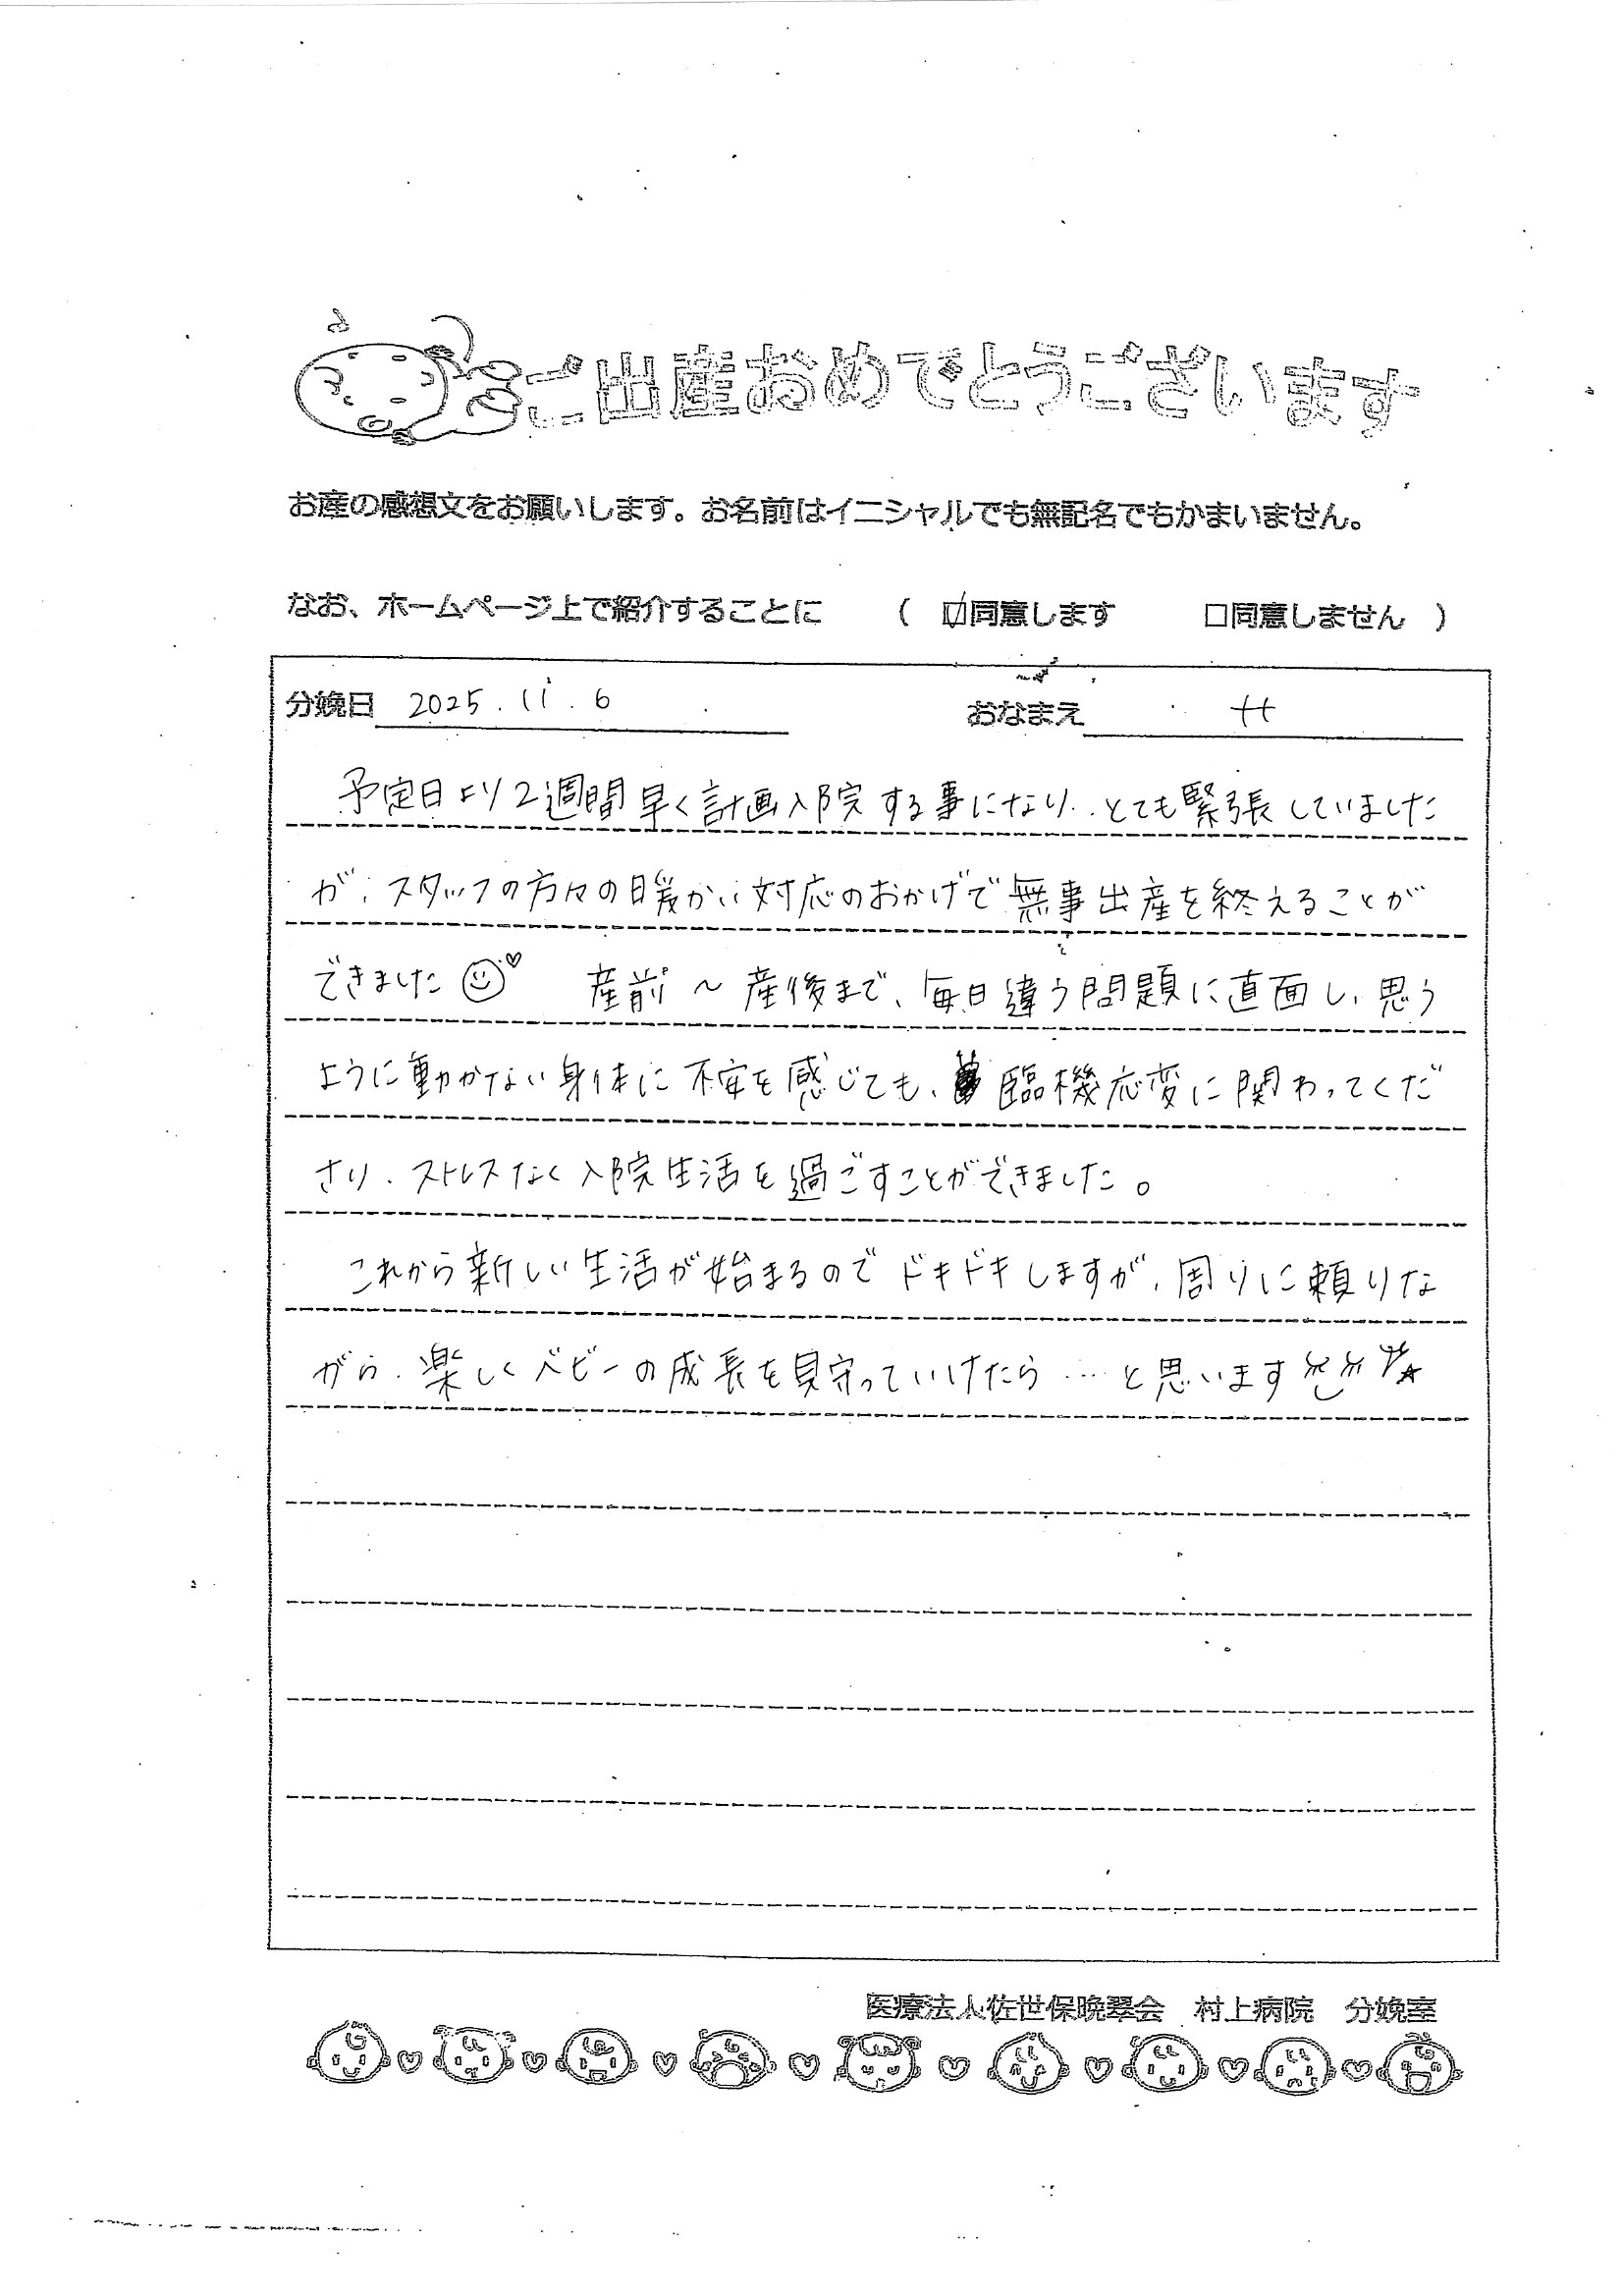 ご出産おめでとうございます
お産の感想文をお願いします。お名前はイニシャルでも無記名でもかまいません。
なお、ホームページ上で紹介することに （ ☑同意します □同意しません ）
分娩日 2025.11.6 おなまえ
予定日より2週間早く計画入院する事になり、とても緊張していました
が、スタッフの方々の暖かい対応のおかげで無事出産を終えることが
できました 産前～産後まで、毎日違う問題に直面し、思う
ように動かない身体に不安を感じても、臨機応変に関わってくだ
さり、ストレスなく入院生活を過ごすことができました。
これから新しい生活が始まるのでドキドキしますが、周りに頼りな
がら、楽しくベビーの成長を見守っていけたら…と思います
医療法人佐世保晩翠会 村上病院 分娩室